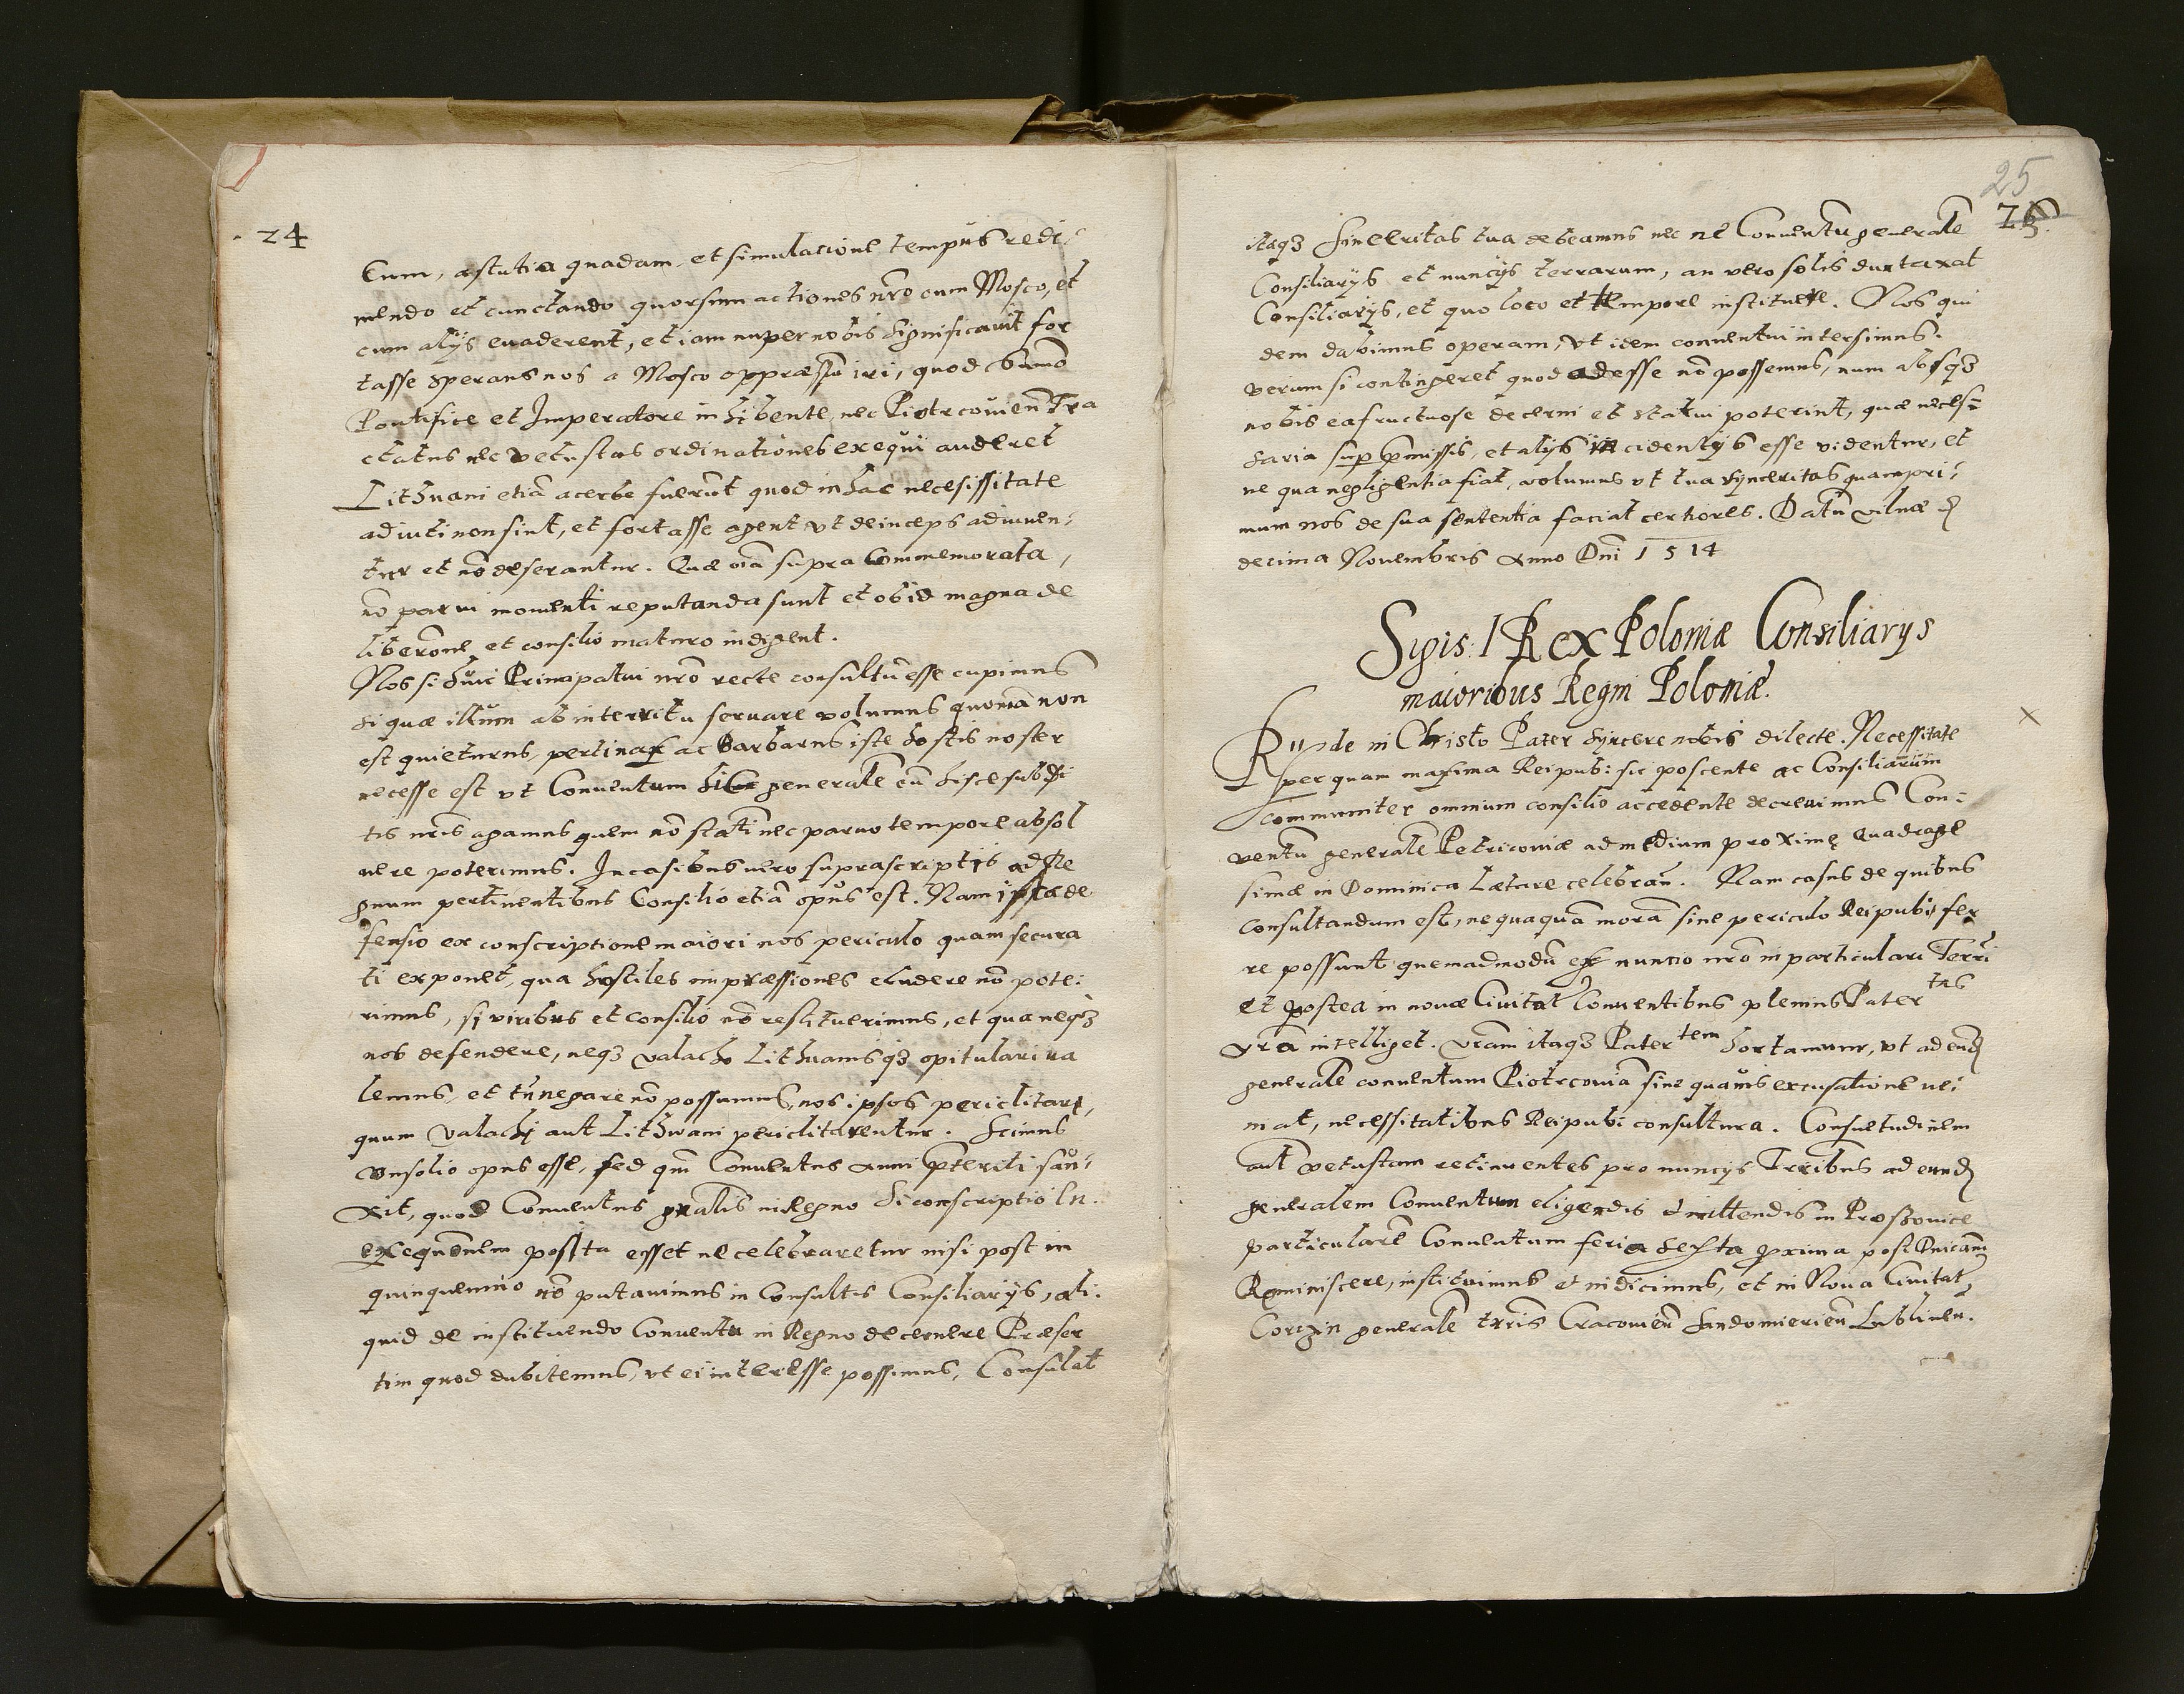 24
Cum, astutia quadam et simulatione tempus redi-
mendo et cunctando quorsum actiones nr̃o cum Mosco, et
cum alijs euaderent, et iam nuper nobis significauit for
tasse sperans nos a Mosco oppræssũ iri, quod Sum̃o
Pontifice et Imperatore inhibente, nec Piotrcouien̄ Tra
ctatus nec vetustas ordinationes exequi auderet
Lithuani etiã acerbe fuerũt quod in hac necesissitate
adiuti non sint, et fortasse agent vt deinceps adiuuen-
tur et nõ deserantur. Quæ oĩa supra Commemorata,
nõ parui momenti reputanda sunt et ob id magna de
liberõne et consilio maturo indigent.
Nos si huic Principatui nr̃o recte consultũ esse cupimus
si quæ illum ab interritu seruare volumus quoniã non
est quieturus, pertinax ac Barbarus iste hostis noster
necesse est vt Conuentum hic generalẽ cũ hisce subdi
tis nr̃is agamus quem nõ statĩ nec paruo tempore absol
uere poterimus. In casibus uero suprascriptis ad Re
gnum pertinentibus Consilio etiã opus est. Nam ipsa de
fensio ex conscriptione maiori nos periculo quam secura
ti exponet, qua hostiles impræssiones eludere nõ pote-
rimus, si viribus et consilio nõ restituerimus, et qua neqȝ
nos defendere, neqȝ valacho Lithuanisqȝ opitulari ua
lemus, et tñ negare nõ possumus, nos ipsos periclitari,
quum Valachi aut Lithwani periclitarentur. Scimus
Consolio opus esse, sed qm̃ Conuentus anni p̃teriti san-
xit, quod Conuentus gr̃alis in Regno si conscriptio In
exequõnem posita esset ne celebraretur nisi post in
quinquennio nõ putauimus in Consultis Consiliarijs, ali-
quid de instituendo Conuentu in Regno decernere Præser
tim quod dubitemus, vt ei interesse possimus, Consulat
25
itaqȝ Sinceritas tua debeamus nec ne Conuentũ generalẽ
Consiliarijs et nuncijs terrarum, an vero solis duntaxat
Consiliarijs, et quo loco et tempore instituere. Nos qui
dem dabimus operam, vt idem conuentui intersimus.
verum si contingeret quod adesse nõ possemus, num absqȝ
nobis ea fructuose decerni et statui poterint, quæ neces-
saria sup p̃missis, et alijs incidentijs esse videntur, et
ne qua negligentia fiat, uolumus vt tua synceritas quampri-
mum nos de sua sententia faciat certiores. Datũ vilnæ
decima Nouembris Anno Dñi 1514
Sigis: I Rex Poloniæ Consiliarijs
maioribus Regni Poloniæ.
Rṇde in Christo Pater syncere nobis dilecte. Necessitate
per quam maxima Reipub: sic poscente ac Consiliarium
Communiter omnium consilio accedente decreuimus Con-
ventũ generalẽ Petricouiæ ad medium proximę Quadrage
simæ in Dominica Lætare celebrañ. Nam casus de quibus
consultandum est, nequaquã morã sine periculo Reipub: fer
re possunt quemadmodũ ex nuncio nr̃o in particulari Terri
et postea in nouæ Ciuitat Conuentibus plenius Pater tas
vr̃a intelliget. vr̃am itaqȝ Pater tem hortamur, vt ad eund
generalẽ conuentum Piotrcouiã sine quauis excusatione ue-
niat, necessitatibus Reipub: consultura. Consuetudinem
aut̃ vetustam retinentes pro nuncijs Terribus ad eund
generalem Conuentum eligendis et mittendis in Proszouice
particularẽ Conuentum feria sexta p̃xima post Dnicam
Reminiscere, instituimus et indicimus, et in Noua Ciuitat
Corczin generalẽ terris Cracouieñ Sandomierieñ Lublineñ.